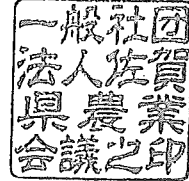 一般社団
法人佐賀
県農業
会議之印